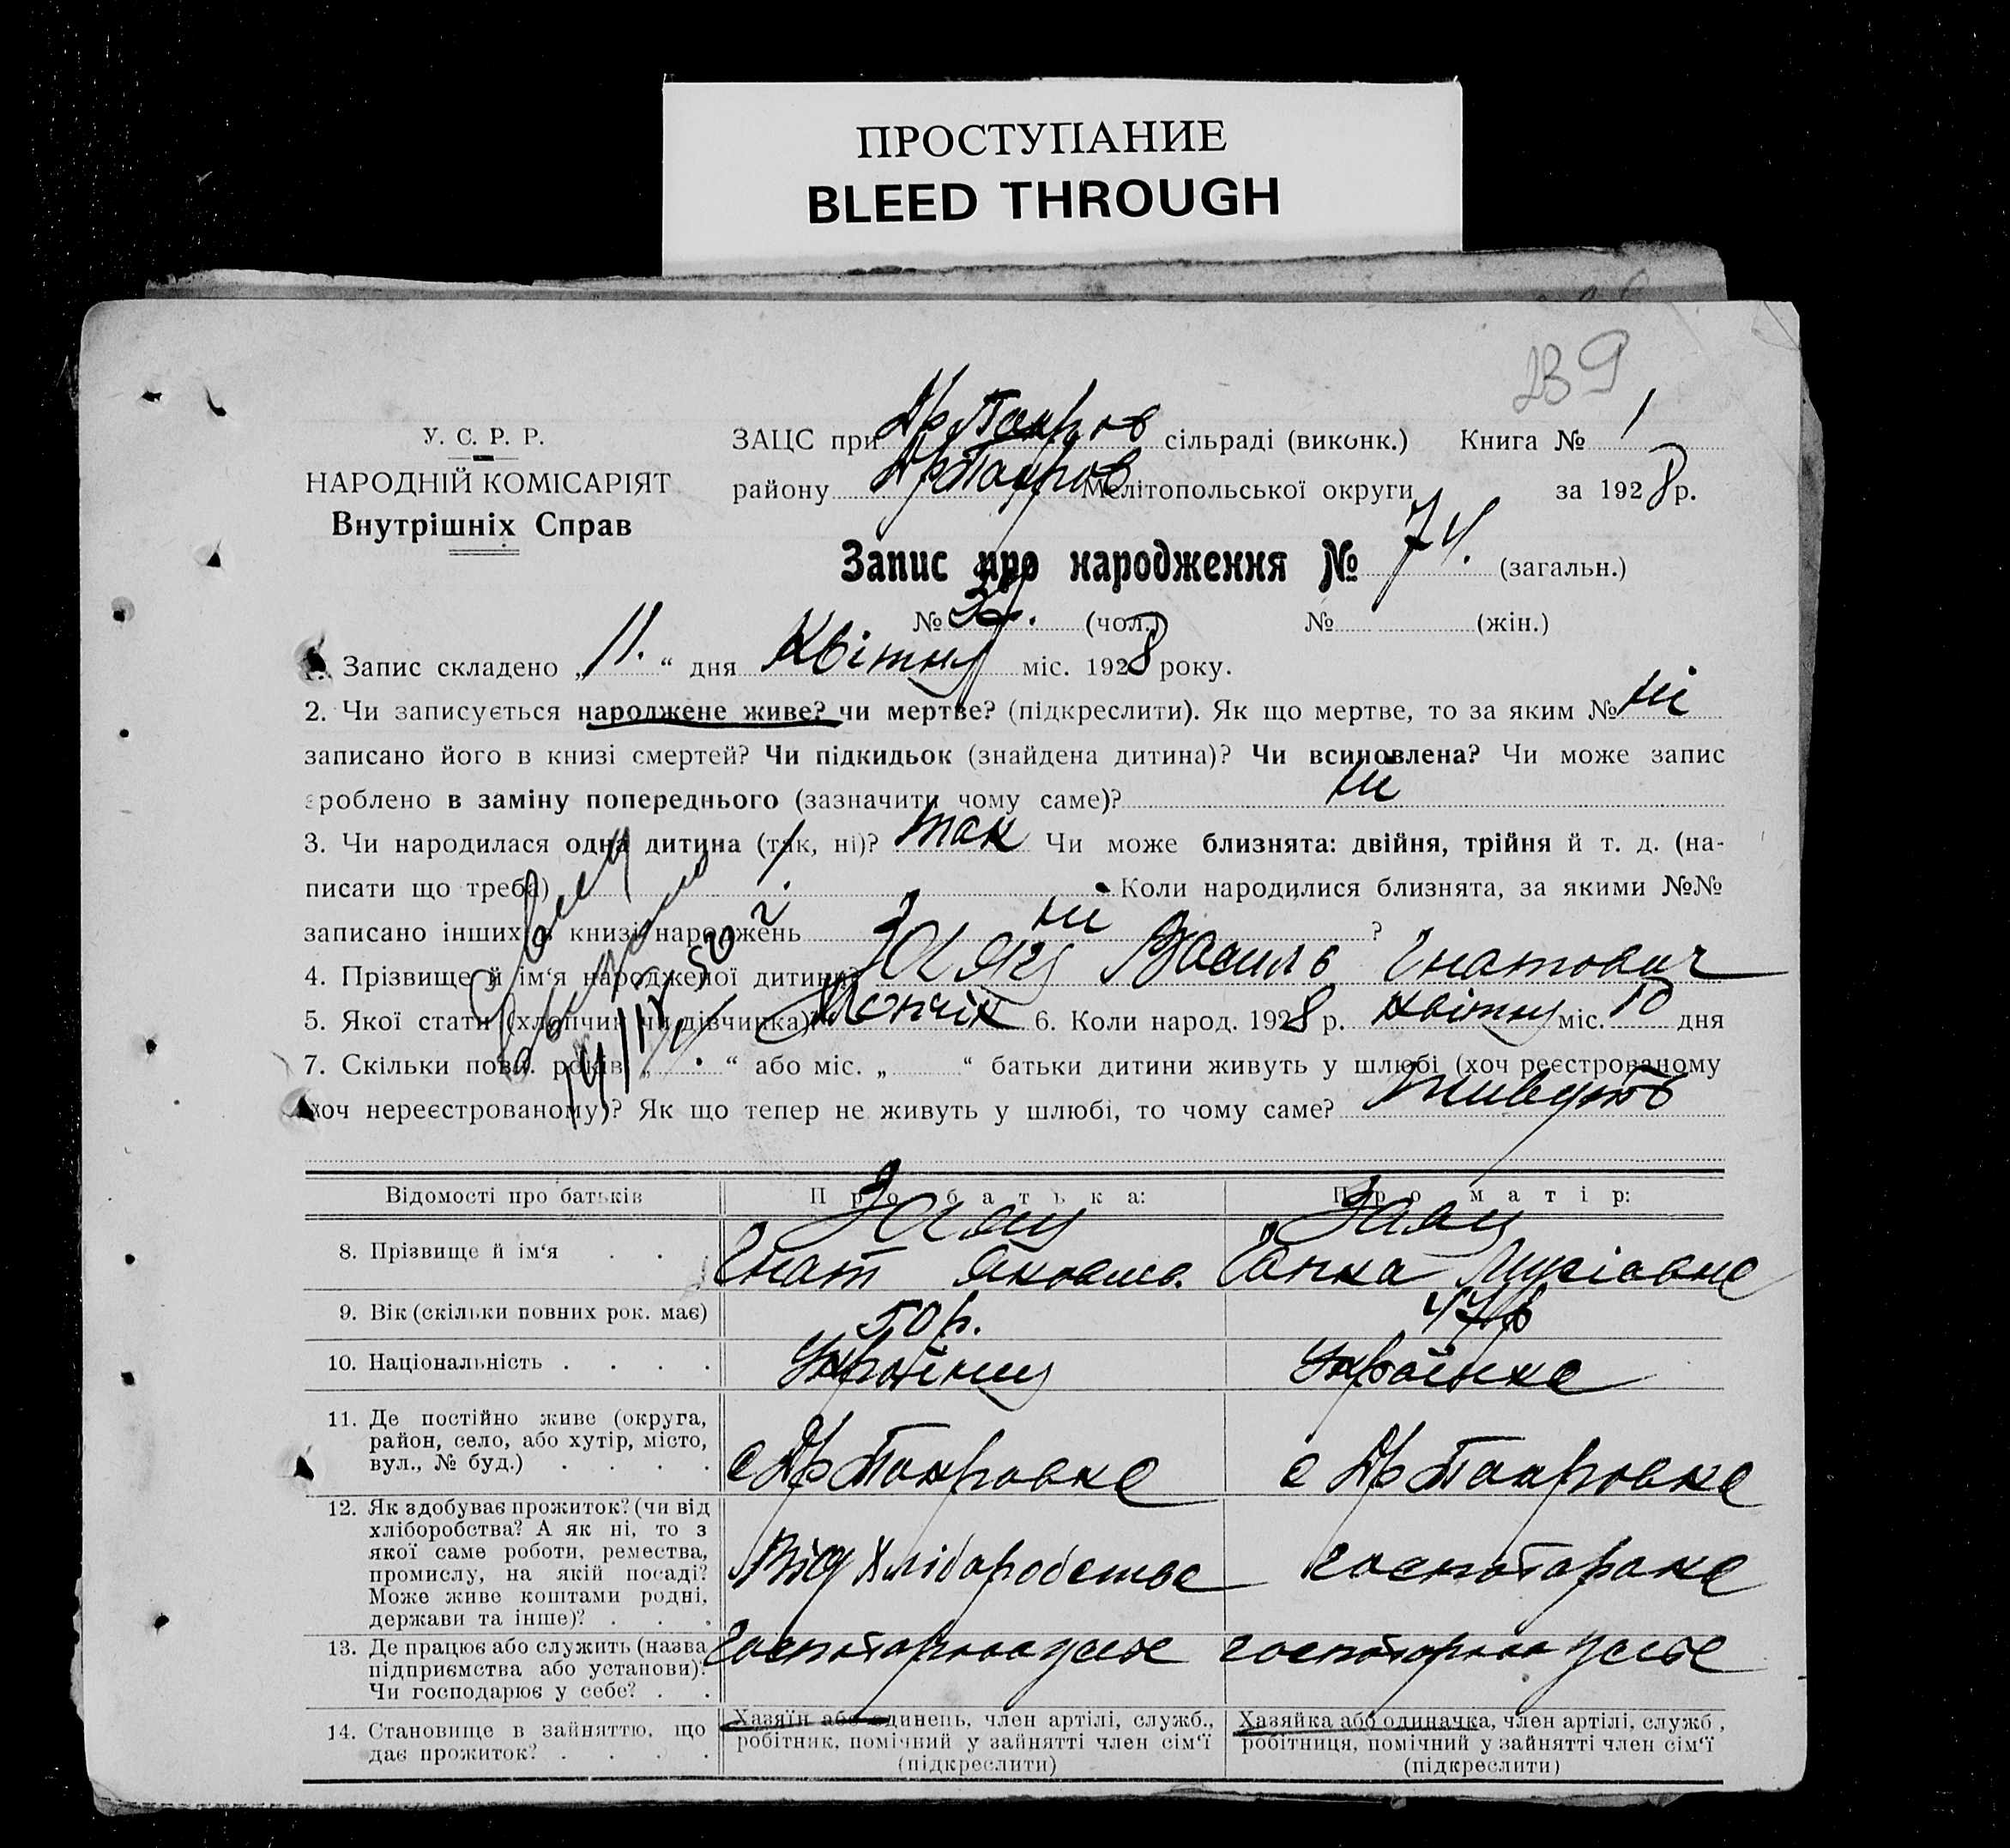 ПРОСТУПАНИЕ
BLEED THROUGH
239
У. С. Р. Р.
НАРОДНІЙ КОМІСАРІЯТ
Внутрішніх Справ
ЗАЦС при Др Покров сільраді (виконк.) Книга № 1
району Др Покров Мелітопольської округи за 1928 р.
Запис про народження № 74. (загальн.)
№ (чол.) № (жін.)
1. Запис складено „11.“ дня Квітня міс. 1928 року.
2. Чи записується народжене живе? чи мертве? (підкреслити). Як що мертве, то за яким № ні
записано його в книзі смертей? Чи підкидьок (знайдена дитина)? Чи всиновлена? Чи може запис
зроблено в заміну попереднього (зазначити чому саме)? ні
3. Чи народилася одна дитина (так, ні)? так Чи може близнята: двійня, трійня й т. д. (на-
писати що треба) Коли народилися близнята, за якими №№
записано інших в книзі народжень ні ?
4. Прізвище й ім‘я народженої дитини? Заяц Василь Гнатович
5. Якої статі (хлопчик чи дівчинка)? 6. Коли народ. 1928 р. квітня міс. 10 дня
7. Скільки повн. років „ “ або міс. „ “ батьки дитини живуть у шлюбі (хоч реєстрованому
хоч нереєстрованому)? Як що тепер не живуть у шлюбі, то чому саме? живуть
Відомості про батьків Про батька: Про матір:
8. Прізвище й ім‘я Заяц Гнат Яковль. Заяц Ганна
9. Вік (скільки повних рок. має) 50 р. 47 р
10. Національність Українец Українка
11. Де постійно живе (округа,
район, село, або хутір, місто,
вул., № буд.) с Др Покровка с Др Покровка
12. Як здобуває прожиток? (чи від
хліборобства? А як ні, то з
якої саме роботи, ремества,
промислу, на якій посаді?
Може живе коштами родні,
держави та інше)? Від Хліборобства господарка
13. Де працює або служить (назва
підприємства або установи)?
Чи господарює у себе?
14. Становище в зайняттю, що
дає прожиток?
Хазяїн або одинець, член артілі, служб.,
робітник, помічний у зайнятті член сім‘ї
(підкреслити)
Хазяйка або одиначка, член артілі, служб,
робітниця, помічний у зайнятті член сім‘ї
(підкреслити)